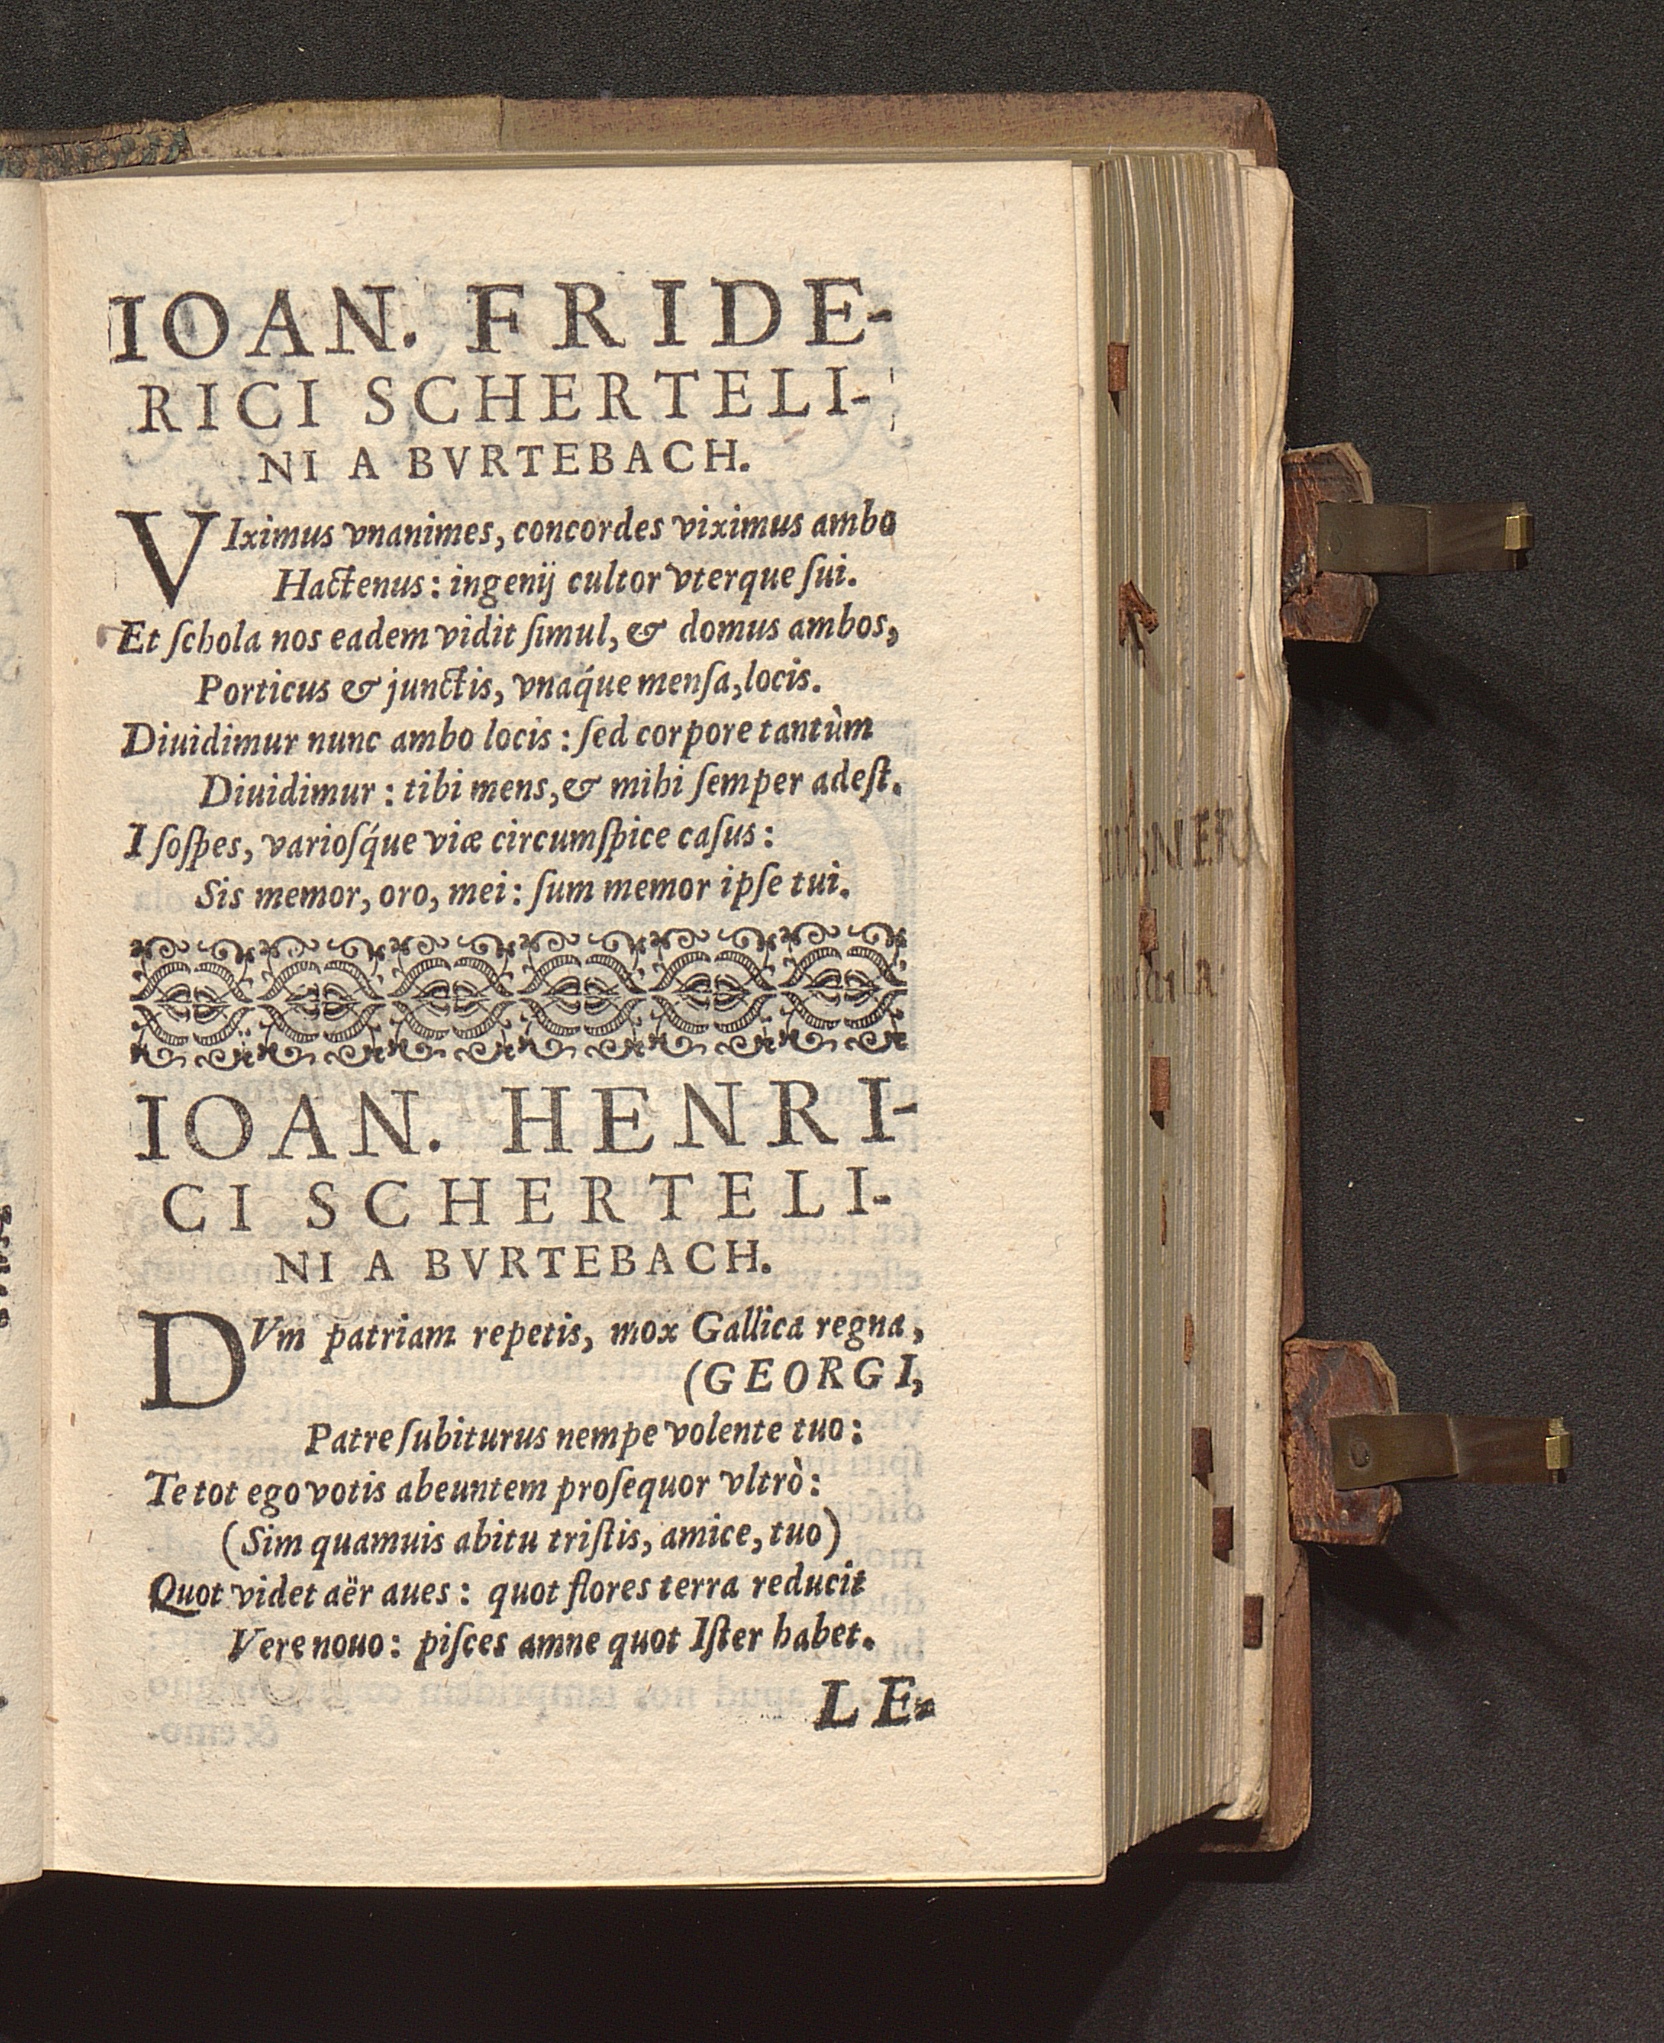 IOAN. FRIDE-
RICI SCHERTELI-
NI A BVRTEBACH.
VIximus vnanimes, concordes viximus ambo
Hactenus: ingenij cultor vterque ſui.
Et ſchola nos eadem vidit ſimul, & domus ambos,
Porticus & junctis, vnaq́ue menſa, locis.
Diuidimur nunc ambo locis: ſed corpore tantùm
Diuidimur: tibi mens, & mihi ſemper adeſt.
I ſoſpes, varioſq́ue viæ circumſpice caſus:
Sis memor, oro, mei: ſum memor ipſe tui.
IOAN. HENRI-
CI SCHERTELI-
NI A BVRTEBACH.
DVm patriam repetis, mox Gallica regna,
(GEORGI,
Patre ſubiturus nempe volente tuo:
Te tot ego votis abeuntem proſequor vltrò:
(Sim quamuis abitu triſtis, amice, tuo)
Quot videt aër aues: quot flores terra reducit
Vere nouo: piſces amne quot Iſter habet.
LE-